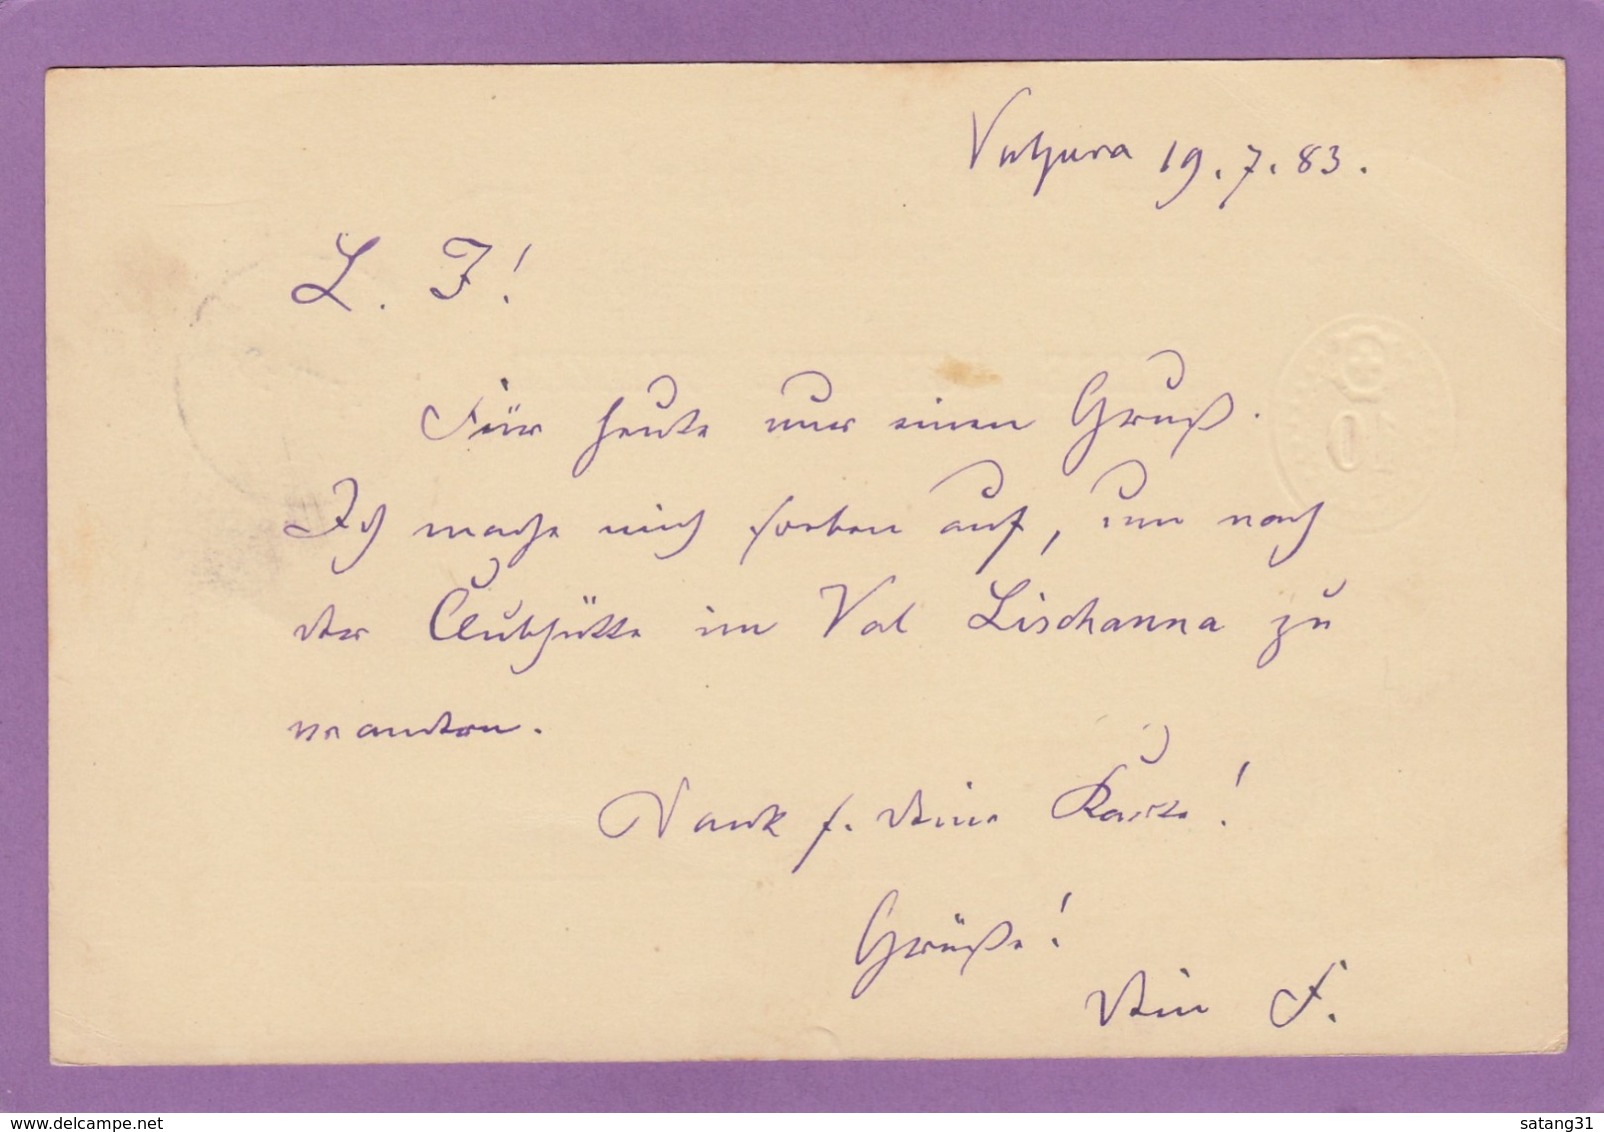 Vulpera 19.7.83.
L. F!
Für heute nur einen Gruß.
Ich mache mich soeben auf, um nach
der Clubhütte im Val Lischanna zu
wandern.
Dank f. deine Karte!
Grüße!
Dein F.
10
www.delcampe.net
satang31